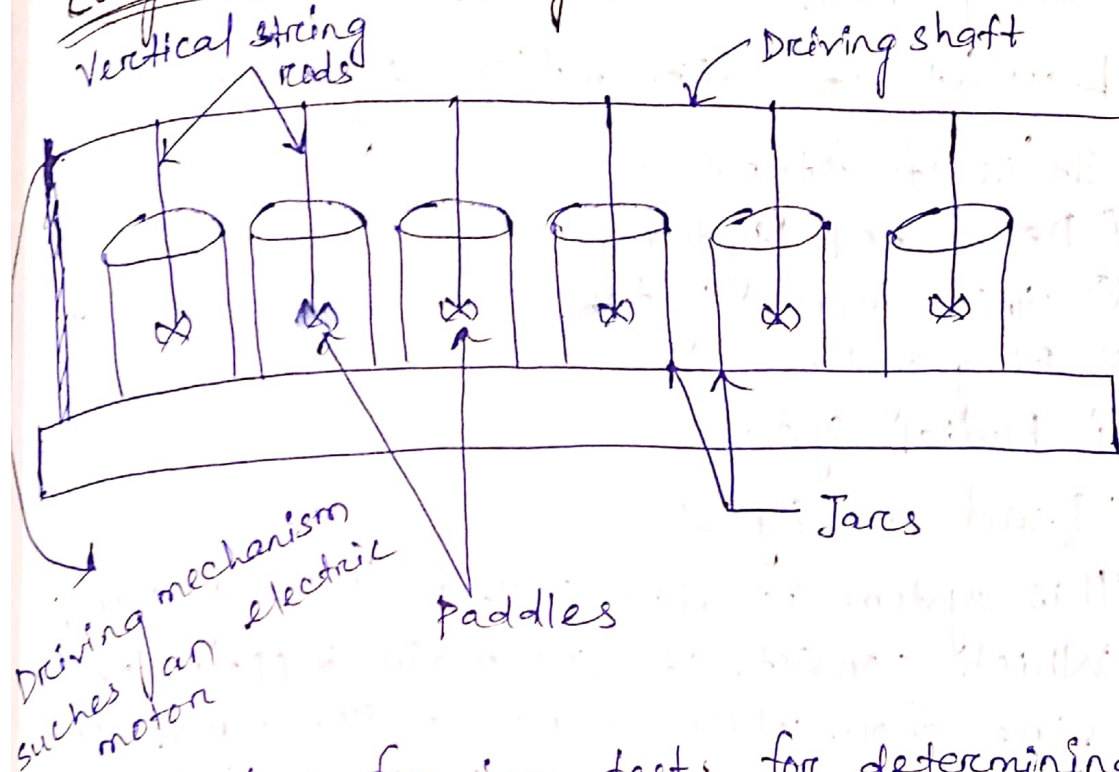 Vertical string
rods
Driving shaft
Jars
Paddles
Driving mechanism
suches an electric
motor
for jar test: for determining